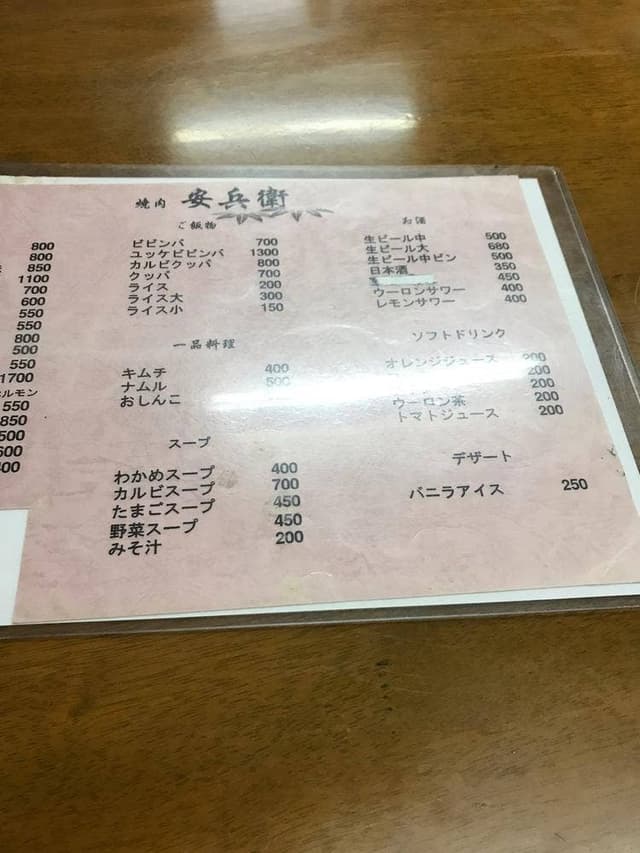 焼肉 安兵衛
800
800
850
1100
700
600
550
550
800
500
550
1700
ホルモン
550
850
500
600
400
ご飯物
ビビンバ 700
ユッケビビンバ 1300
カルビクッパ 800
クッパ 700
ライス 200
ライス大 300
ライス小 150
一品料理
キムチ 400
ナムル 500
おしんこ
スープ
わかめスープ 400
カルビスープ 700
たまごスープ 450
野菜スープ 450
みそ汁 200
お酒
生ビール中 500
生ビール大 680
生ビール中ビン 500
日本酒 350
450
ウーロンサワー 400
レモンサワー 400
ソフトドリンク
オレンジジュース 200
200
200
ウーロン茶 200
トマトジュース 200
デザート
バニラアイス 250